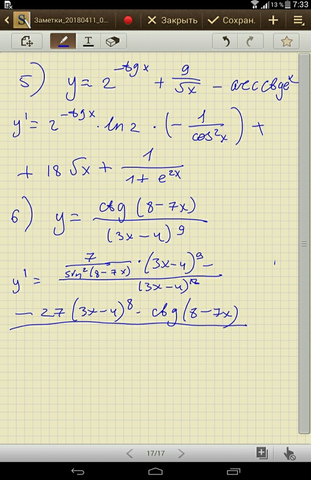 13% 7:33
Заметки_20180411_0...
Закрыть
Сохран.
5) y = 2^(-tg x) + 9/√x - arcctg e^x
y' = 2^(-tg x) · ln 2 · (- 1/cos²x) +
+ 18√x + 1/(1 + e^(2x))
6) y = ctg (8-7x) / (3x-4)^9
y' = 7/sin²(8-7x) · (3x-4)^9 - / (3x-4)^18
- 27 (3x-4)^8 - ctg (8-7x)
17/17